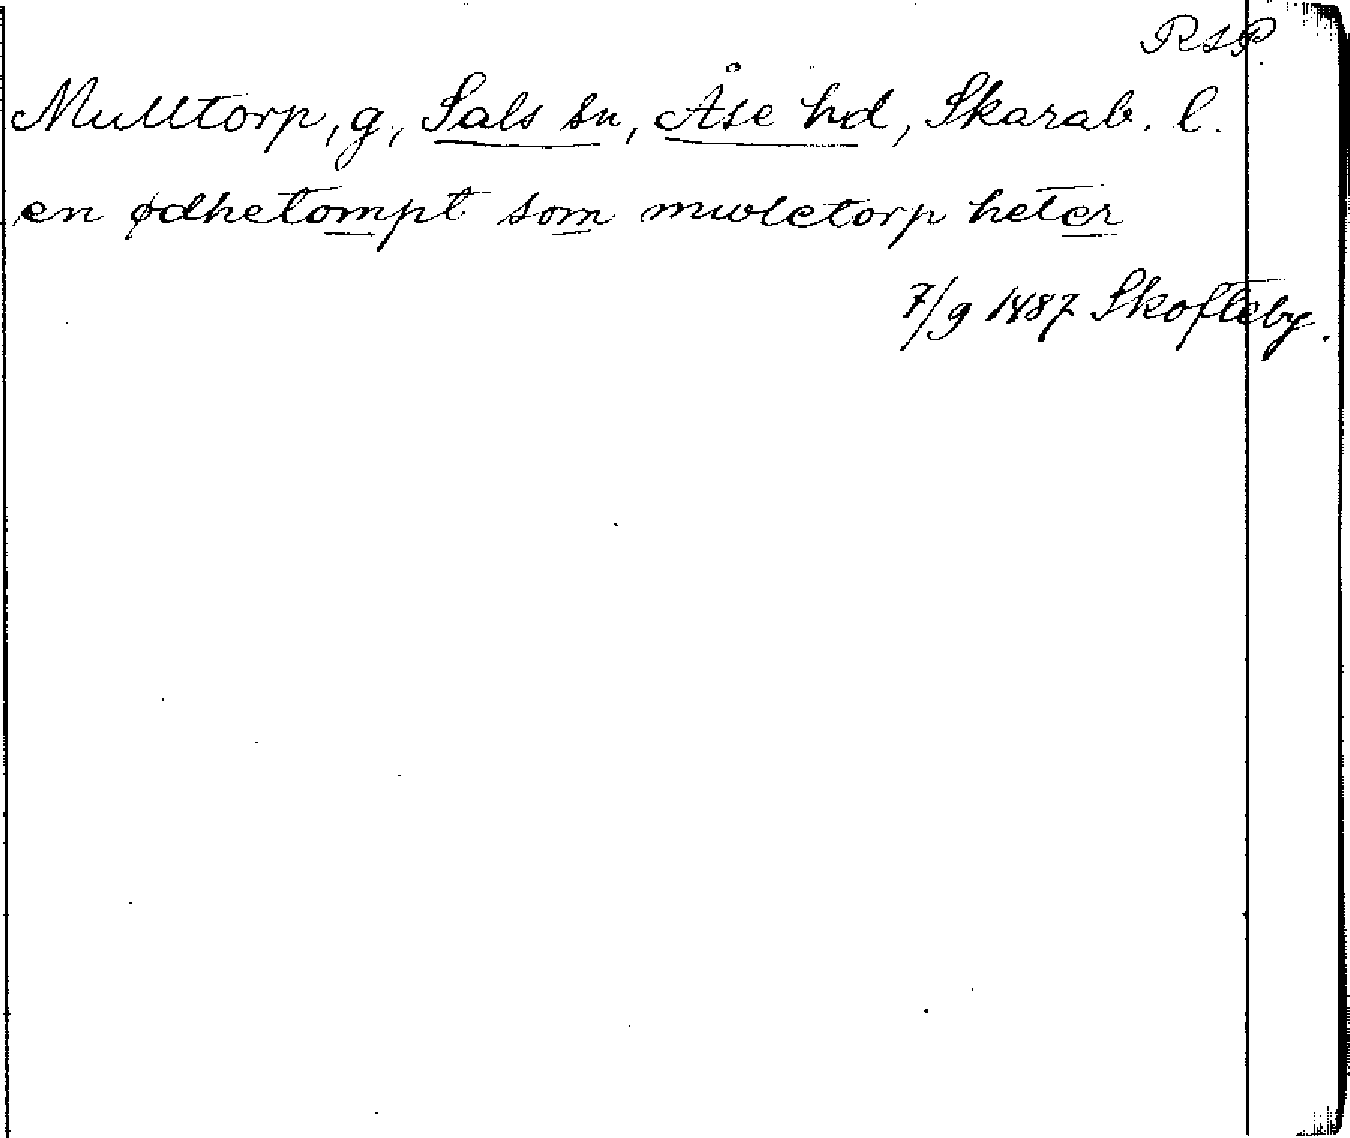 RAP.
Mulltorp, g, Sals sn, Åse hd, Skarab. l.
en ødhetompt som mwletorp heter
7/9 1487 Skofteby.